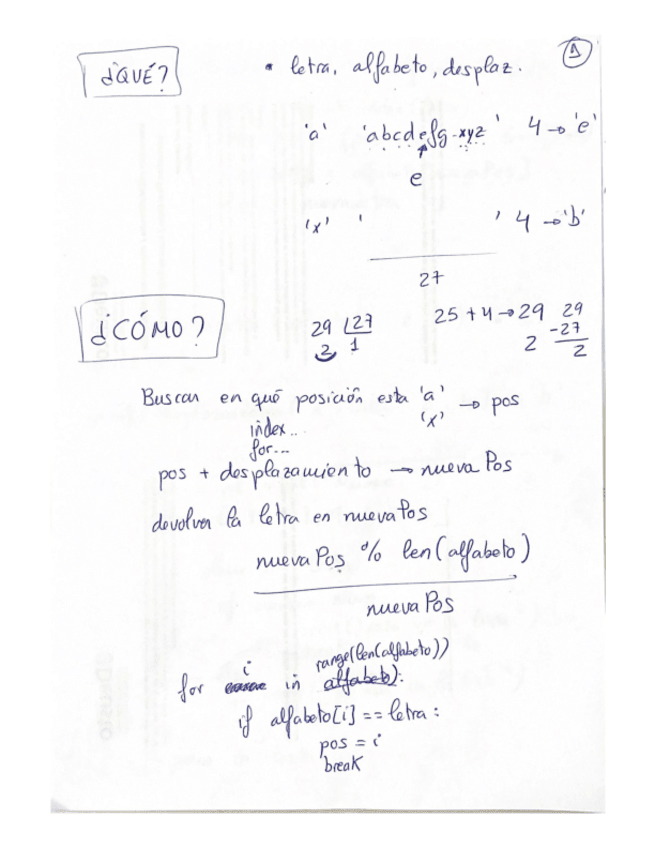 1
¿QUÉ?
• letra, alfabeto, desplaz.
'a' 'abcdefg-xyz' 4 → 'e'
e
'x' ' ' 4 → 'b'
27
¿CÓMO?
29 27
2 1
25 + 4 → 29
2
29
-27
2
Buscar en qué posición esta 'a' → pos
'x'
index..
for...
pos + desplazamiento → nueva Pos
devolver la letra en nuevaPos
nueva Pos % len(alfabeto)
nueva Pos
i range(len(alfabeto))
for in alfabeto):
if alfabeto[i] == letra:
pos = i
break